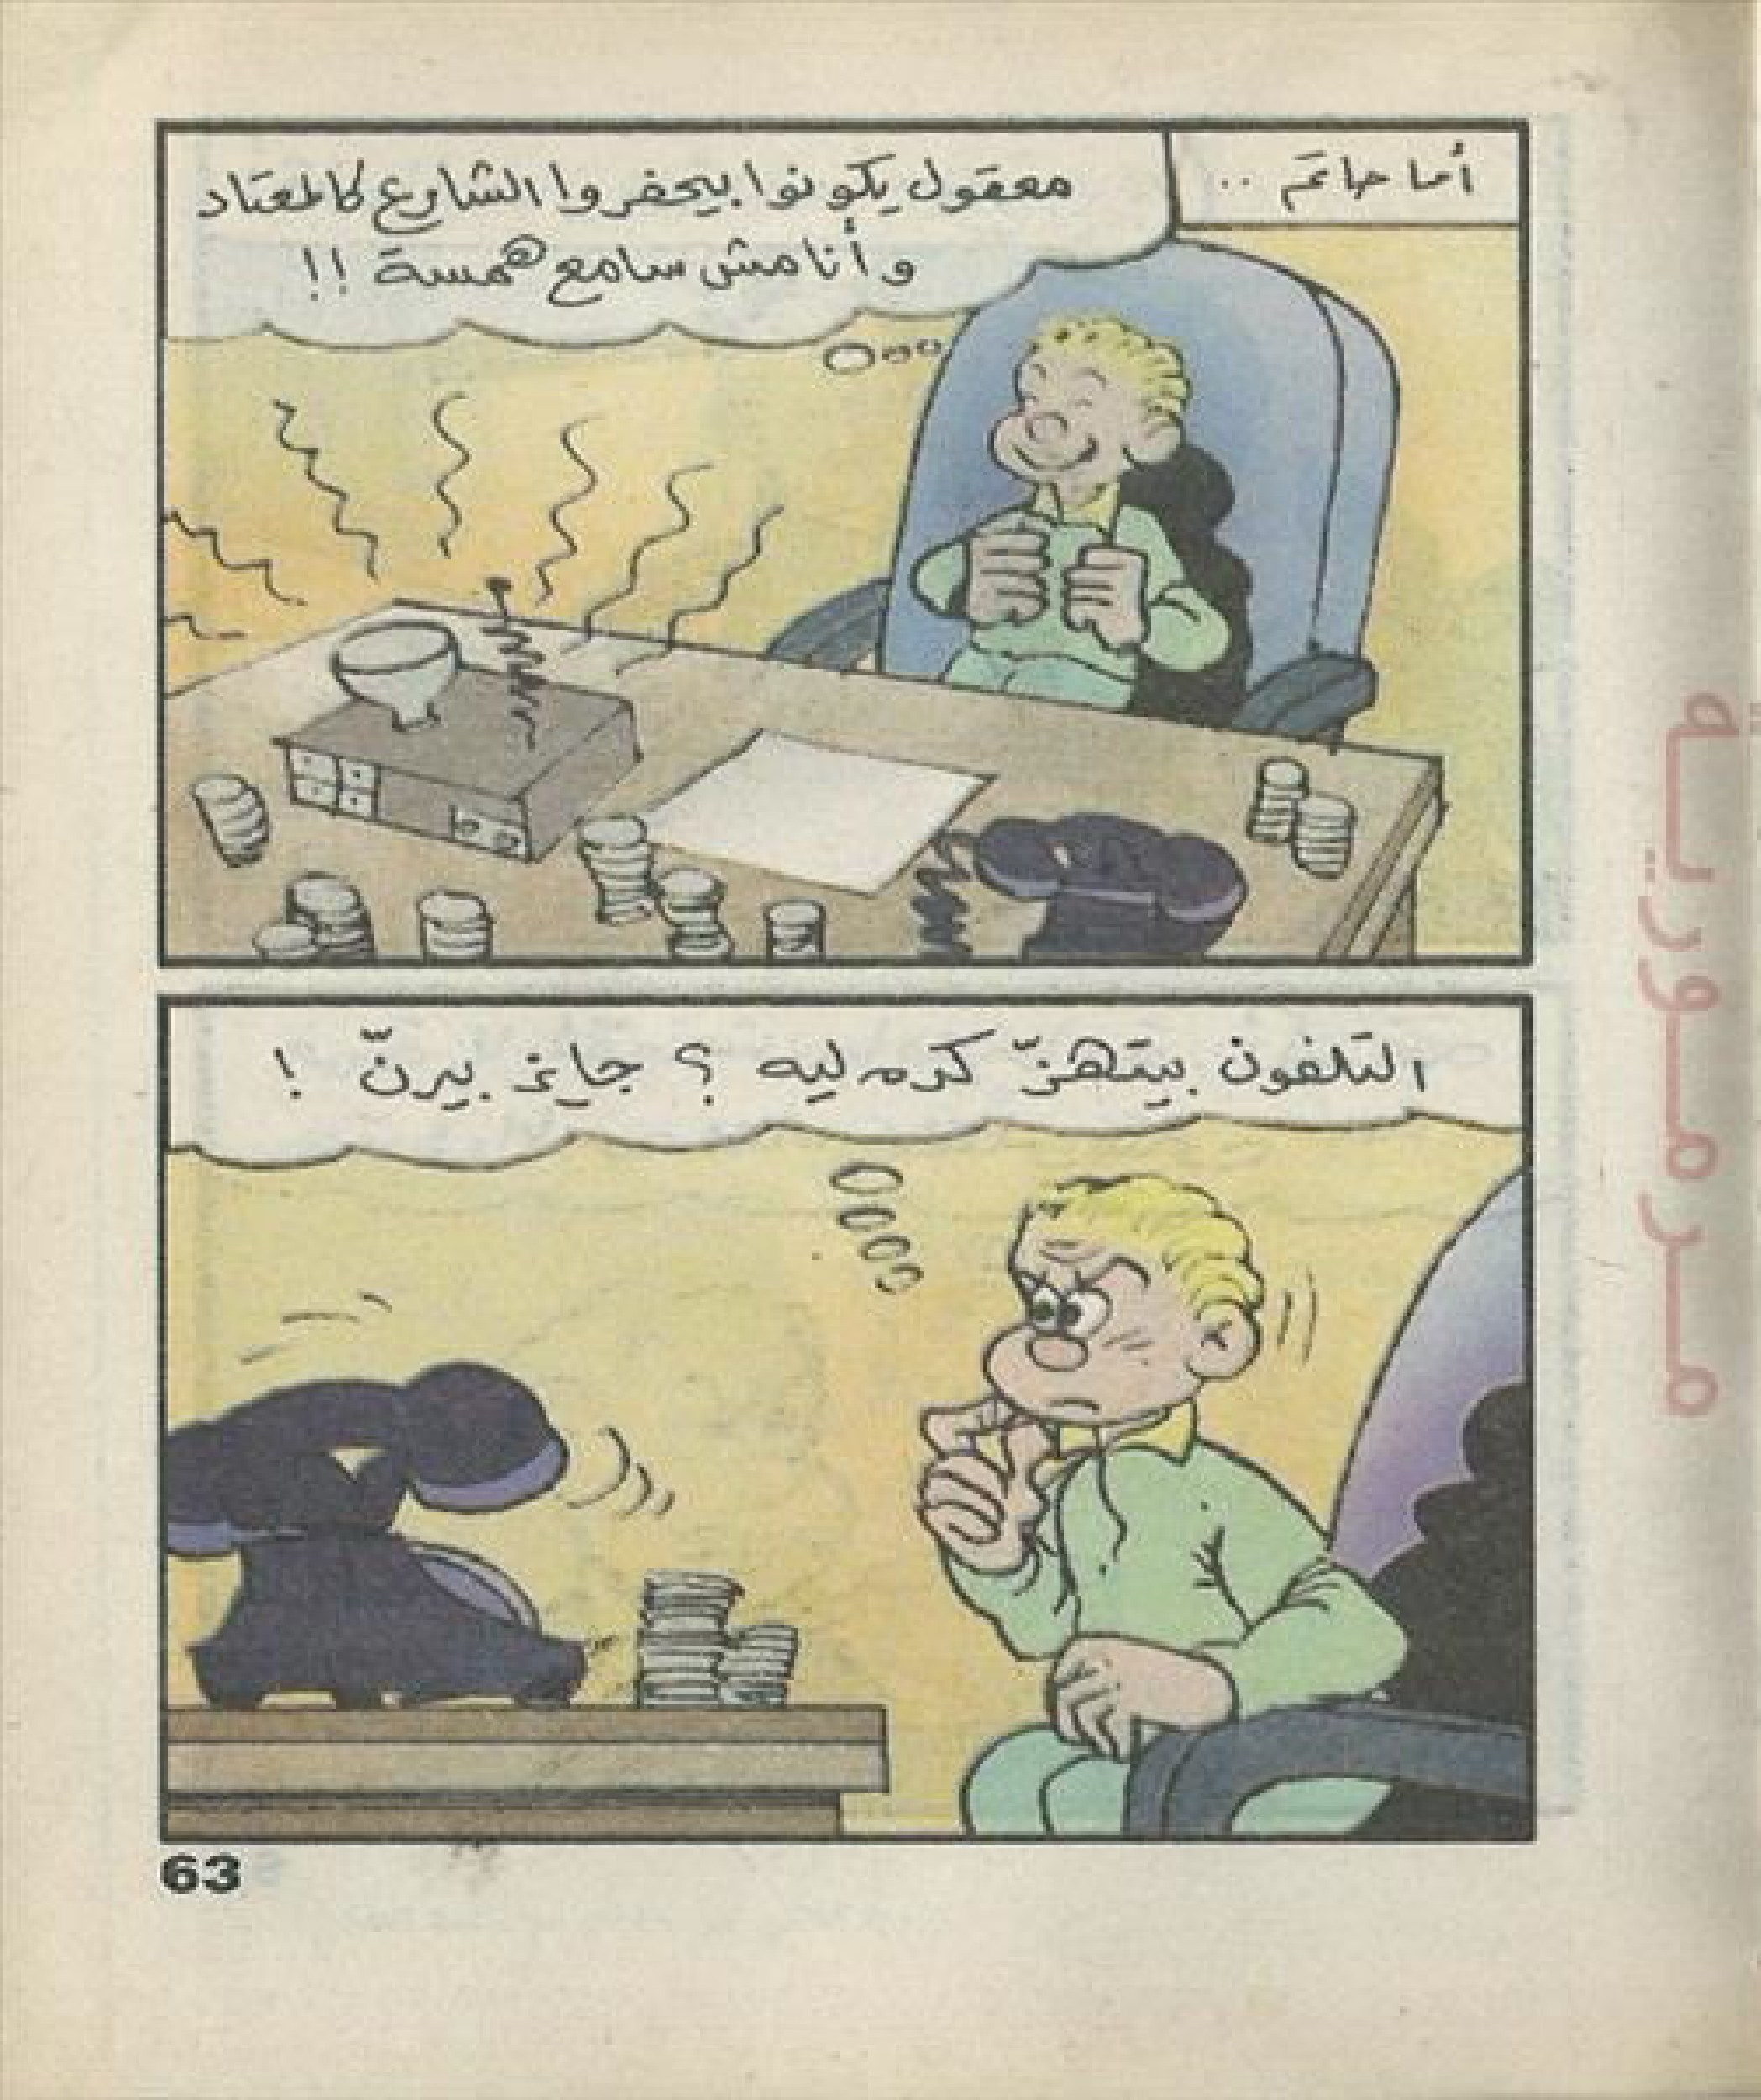 أما حاتم ..
معقول يكونوا بيحفروا الشارع كالمعتاد
وأنا مش سامع همسة !!
التلفون بيتهزّ كده ليه ؟ جايز بيرنّ !
63
مرمورية